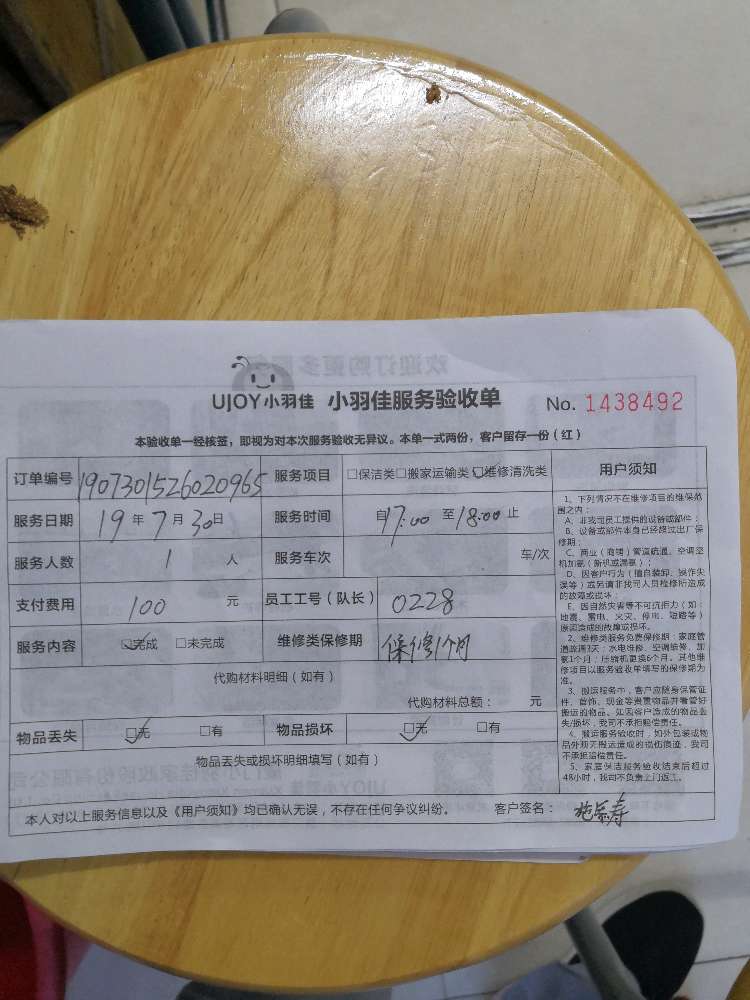 UJOY小羽佳 小羽佳服务验收单 No. 1438492
本验收单一经核签，即视为对本次服务验收无异议。本单一式两份，客户留存一份（红）
订单编号 1907301526020965 服务项目 □保洁类□搬家运输类☑维修清洗类
服务日期 19年7月30日 服务时间 自17:00至18:00止
服务人数 1 人 服务车次 车/次
支付费用 100 元 员工工号（队长） 0228
服务内容 ☑完成 □未完成 维修类保修期 保修1个月
代购材料明细（如有）
代购材料总额： 元
物品丢失 ☑无 □有 物品损坏 ☑无 □有
物品丢失或损坏明细填写（如有）
本人对以上服务信息以及《用户须知》均已确认无误，不存在任何争议纠纷。 客户签名：
用户须知
1、下列情况不在维修项目的维保范
围之内：
A、非我司员工提供的设备或部件；
B、设备或部件本身已经超过出厂保
修期；
C、商业（商铺）管道疏通、空调空
机加氨（新机或漏氨）；
D、因客户行为（擅自装卸、误作失
误等）或另请非我司人员检修所造成
的故障或损坏；
E、因自然灾害等不可抗拒力（如：
地震、雷电、火灾、停电、短路等）
原因造成的故障或损坏。
2、维修类服务免费保修期：家庭管
道疏通7天；水电维修、空调维修、加
氨1个月；压缩机更换6个月。其他维
修项目以服务验收单填写的保修期为
准。
3、搬运服务中，客户应随身保管证
件、首饰、现金等贵重物品并看管好
搬运的物品。如因客户造成的物品丢
失/损坏，我司不承担赔偿责任。
4、搬运服务验收时，如外包装或物
品外观无搬运造成的损伤痕迹，我司
不承担赔偿责任。
5、家庭保洁服务验收结束后超过
48小时，我司不负责上门返工。
欢迎订购更多服务